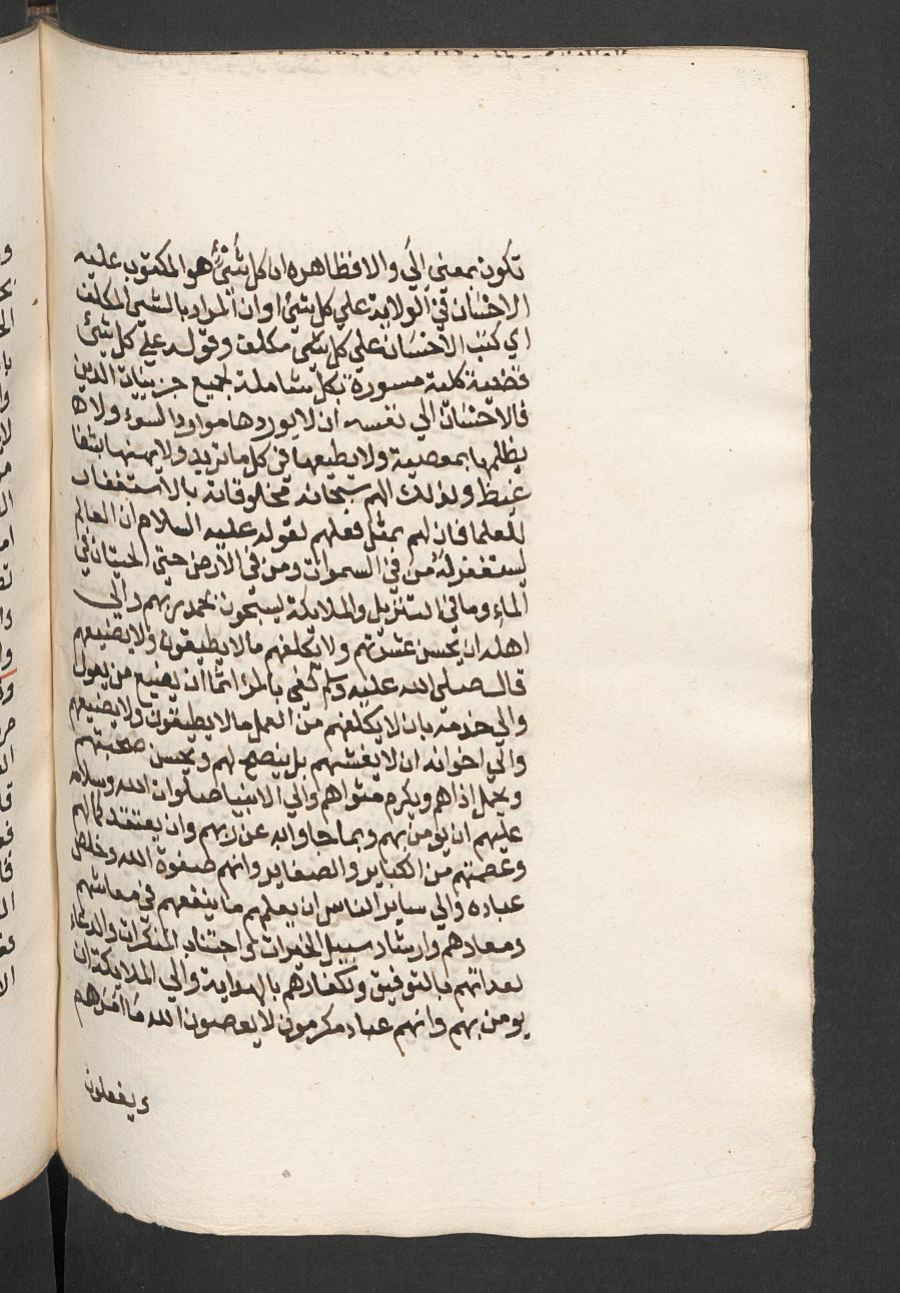 تكون بمعني الي والا فظاهره ان كل شئ هو المكتوب عليه
الاحسان في الولاية علي كل شئ او ان المراد بالشئ المكلف
اي كتب الاحسان علي كل شئ مكلف وقوله علي كل شئ
قضية كلية مسورة بكل شاملة لجميع جزييات الدين
فالاحسان الي نفسه ان لا يوردها موارد السوء ولا
يظلمها بمعصية ولا يطيعها في كل ما تريد ولا
غيظ ولذلك الهم سبحانه مخلوقاته بالاستغفار
للعلما فان لهم بمثل فعلهم لقوله عليه السلام ان العالم
ليستغفر له من في السموات ومن في الارض حتي الحيتان في
الماء وما في التنزيل والملايكة يسبحون بحمد ربهم والي
اهله ان يحسن عشرتهم ولا يكلفهم ما لا يطيقون ولا يضيعهم
قال صلي الله عليه وسلم كفي بالمرء اثما ان يضيع من يعول
والي خدمه بان لا يكلفهم من العمل ما لا يطيقون ولا يضيعهم
والي اخوانه ان لا يغشهم بل ينصح لهم ويحسن صحبتهم
ويحمل اذاهم ويكرم مثواهم والي الانبيا صلوات الله وسلامه
عليهم ان يومن بهم وبما جاوا به عن ربهم وان يعتقد كمالهم
وعصمتهم من الكباير والصغاير وانهم صفوة الله وخلص
عباده والي ساير الناس ان يعلمهم ما ينفعهم في معاشهم
ومعادهم وارشاد سبيل الخيرات او اجتناب المنكرات والدعاء
لعداتهم بالتوفيق ولكفارهم بالهداية والي الملايكة ان
يومن بهم وانهم عباد مكرمون لا يعصون الله ما امرهم
ويفعلون